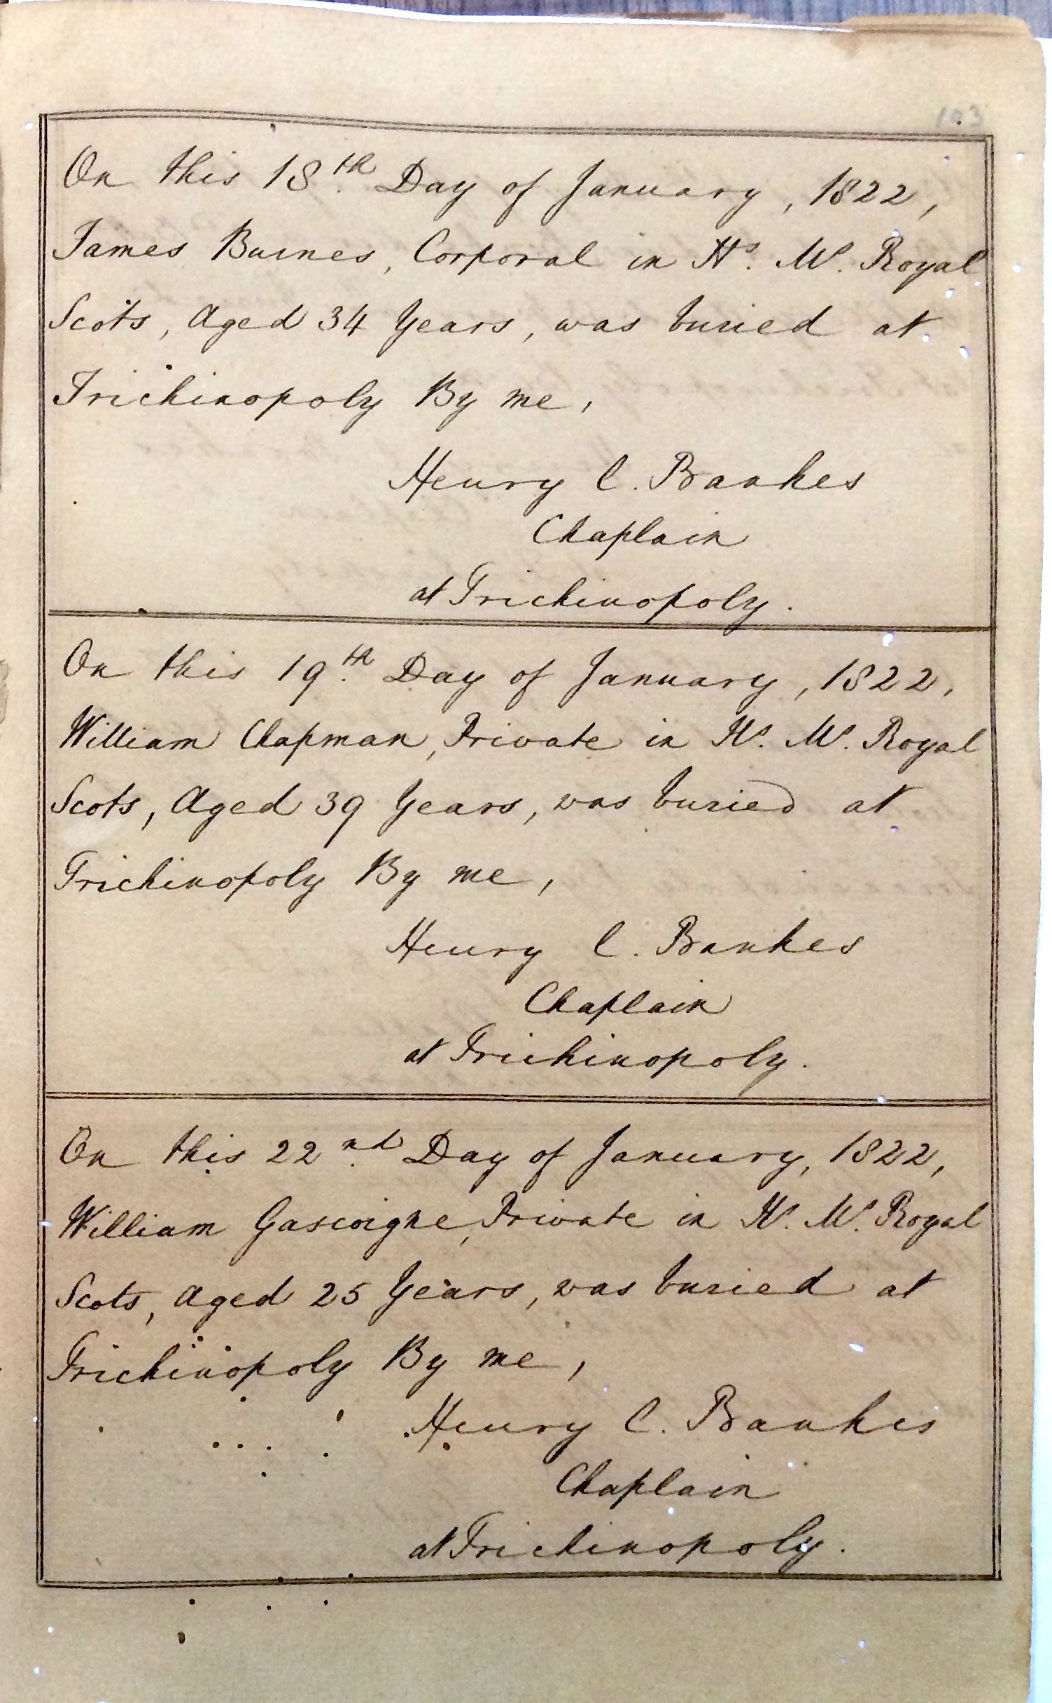 103
On this 18th Day of January, 1822,
James Burnes, Corporal in Hs. Ms. Royal
Scots, Aged 34 Years, was buried at
Trichinopoly By me,
Henry C. Bankes
Chaplain
at Trichinopoly.
On this 19th Day of January, 1822,
William Chapman, Private in Hs. Ms. Royal
Scots, Aged 39 Years, was buried at
Trichinopoly By me,
Henry C. Bankes
Chaplain
at Trichinopoly.
On this 22nd Day of January, 1822,
William Gascoigne, Private in Hs. Ms. Royal
Scots, Aged 25 Years, was buried at
Trichinopoly By me,
Henry C. Bankes
Chaplain
at Trichinopoly.